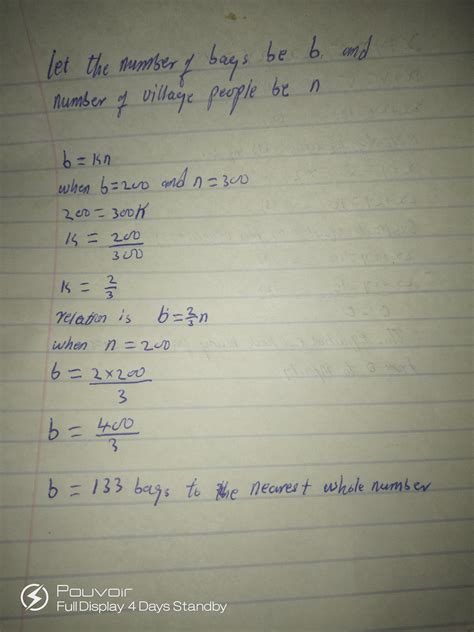 let the number of bags be b and
number of village people be n
b = kn
when b=200 and n=300
200 = 300K
K = 200/300
K = 2/3
relation is b=2/3n
when n = 200
b = 2×200/3
b = 400/3
b = 133 bags to the nearest whole number
Pouvoir
Full Display 4 Days Standby